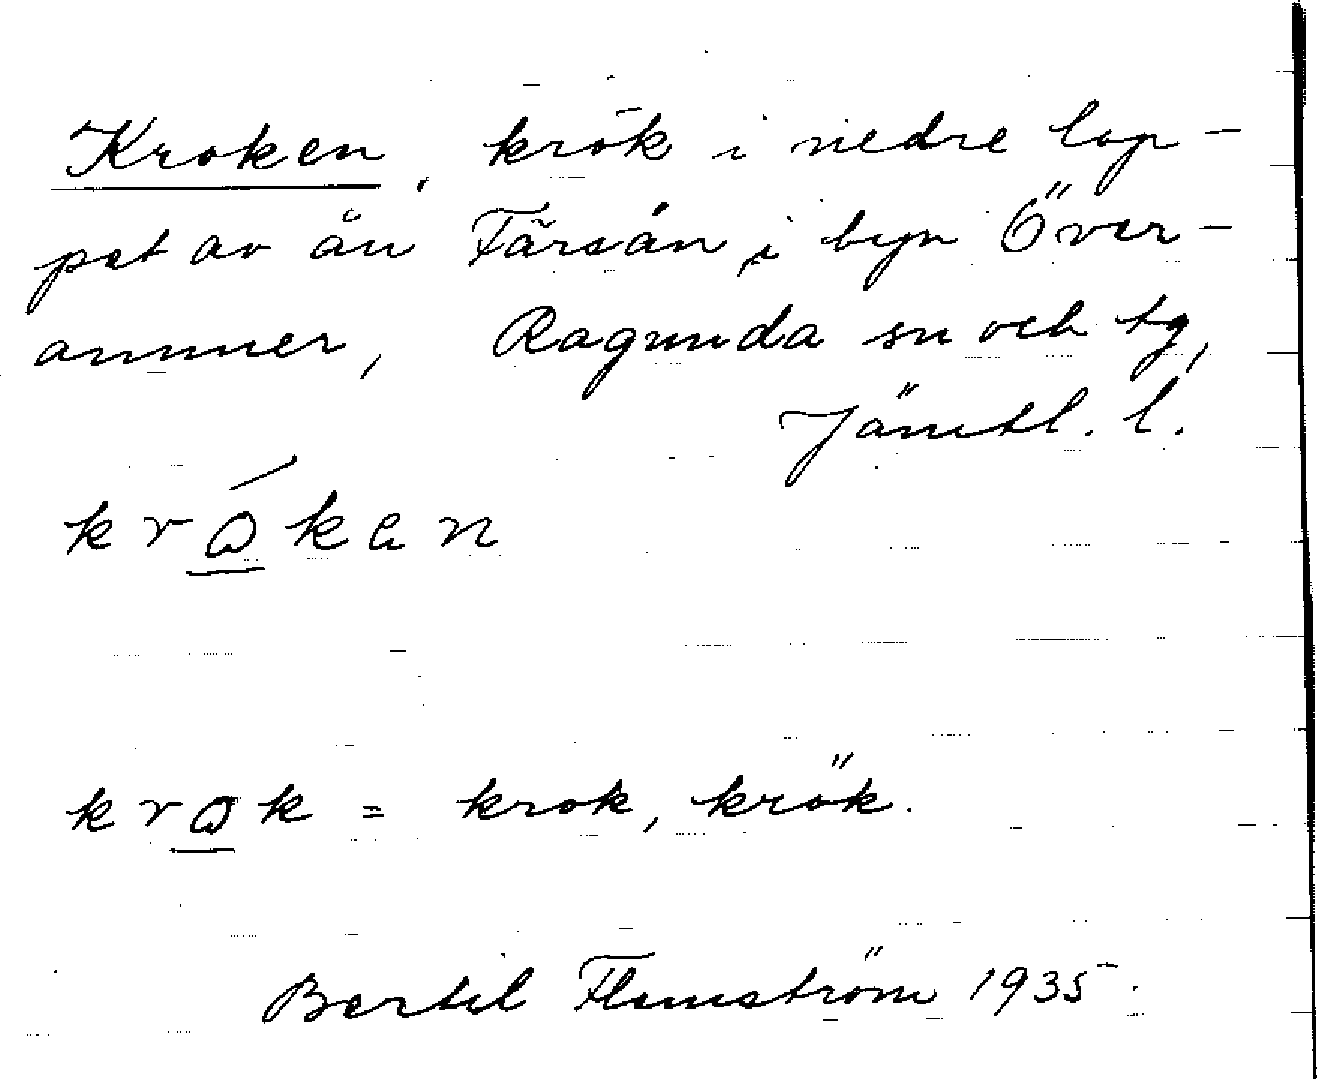 Kroken, krök i nedre lop-
pet av ån Färsån, i byn Över-
ammer, Ragunda sn och tg,
Jämtl. l.
krók en
krok = krok, krök.
Bertil Flemström 1935.